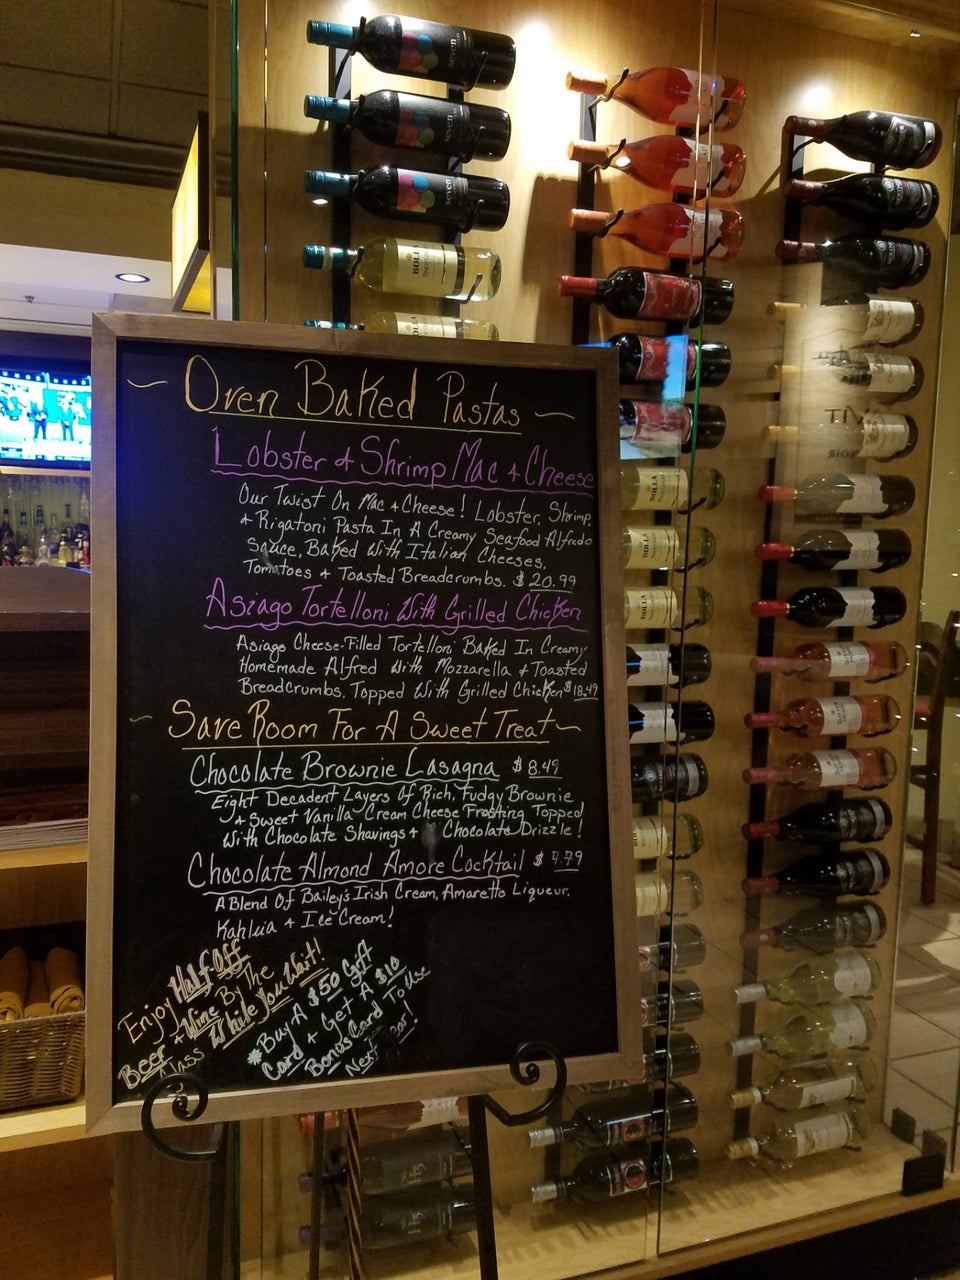 Oven Baked Pastas
Lobster & Shrimp Mac & Cheese
Our Twist On Mac & Cheese! Lobster, Shrimp,
& Rigatoni Pasta In A Creamy Seafood Alfredo
Sauce, Baked With Italian Cheeses,
Tomatoes & Toasted Breadcrumbs. $20.99
Asiago Tortelloni With Grilled Chicken
Asiago Cheese-Filled Tortelloni Baked In Creamy
Homemade Alfred With Mozzarella & Toasted
Breadcrumbs. Topped With Grilled Chicken $18.49
Save Room For A Sweet Treat
Chocolate Brownie Lasagna $8.49
Eight Decadent Layers Of Rich, Fudgy Brownie
& Sweet Vanilla Cream Cheese Frosting Topped
With Chocolate Shavings & Chocolate Drizzle!
Chocolate Almond Amore Cocktail $
A Blend Of Bailey's Irish Cream, Amaretto Liqueur,
Kahlua & Ice Cream!
Enjoy Half Off
Beer & Wine By The
Glass While You Wait!
*Buy A $50 Gift
Card & Get A $10
Bonus Card To Use
Next Year!
seven
seven
seven
BOLLA
BOLLA
BOLLA
BOLLA